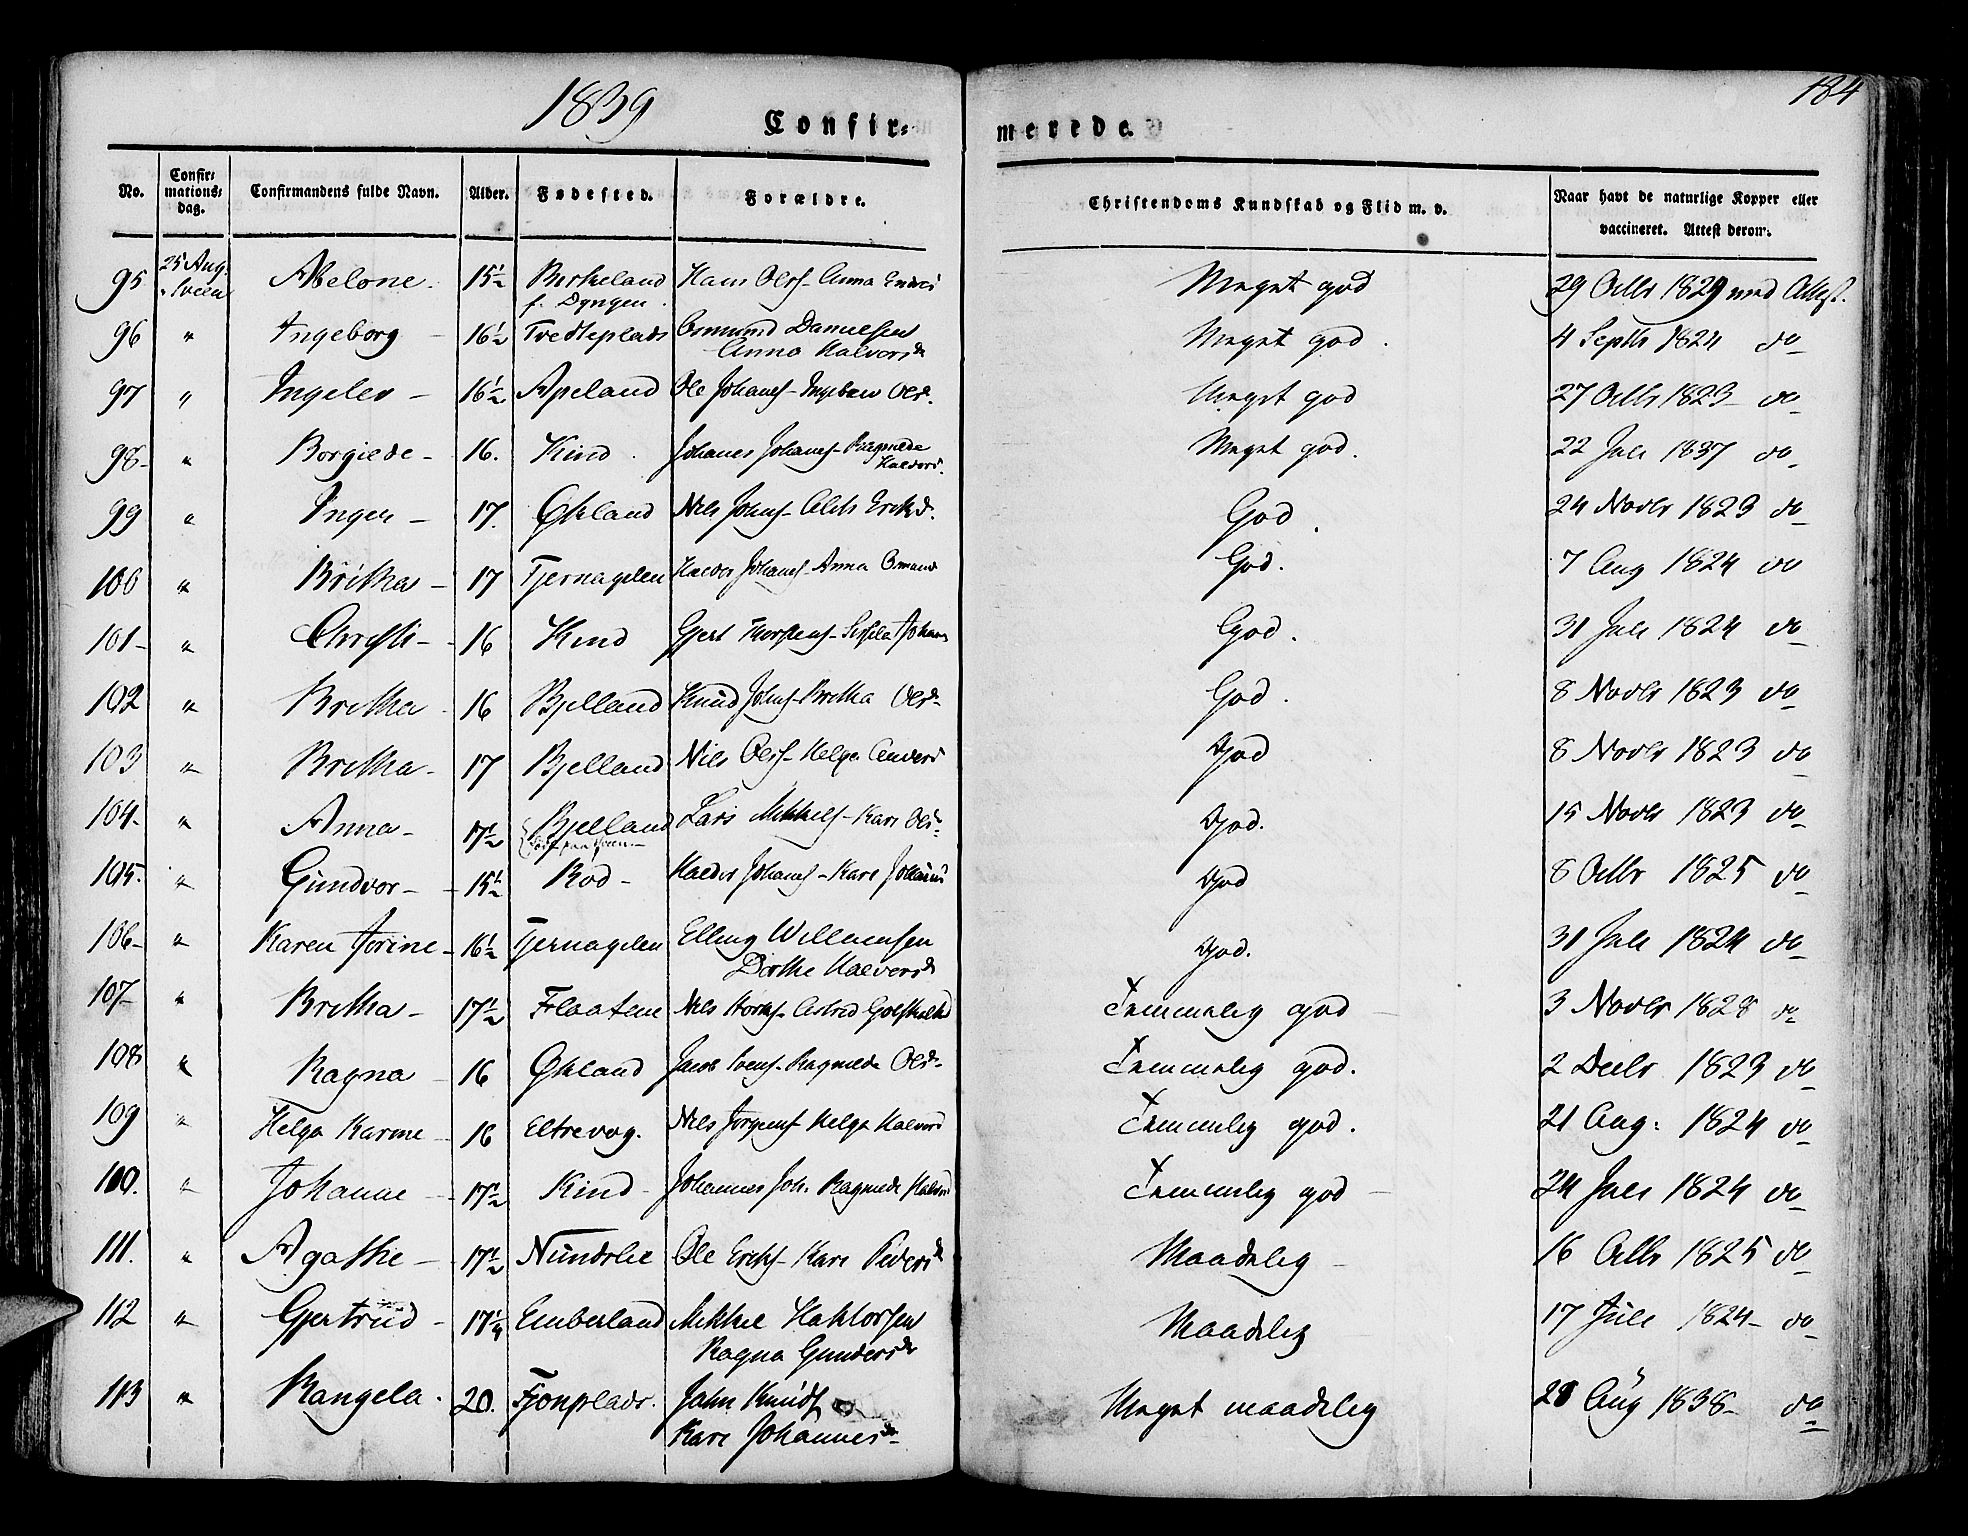 1839
184
Confir-
merede.
No.
Confir-
mations-
dag.
Confirmandens fulde Navn.
Alder.
Fødested.
Forældre.
Christendoms Kundskab og Flid m. v.
Naar havt de naturlige Kopper eller
vaccineret. Attest derom.
95 25 Aug. Abelone 15½ Birkeland Hans Olss- Anna Meget god 29 Octbr 1829 med Attest.
Sveen f. Dyngen.
96 " Ingeborg 16½ Tvedteplads Danielsen Meget god. 4 Septbr 1824 do
Anna Halvorsdr
97 " Ingelev 16½ Apeland Ole Johanss- Olsd. Meget god 27 Octbr 1823 do
98 " Borgilde 16. Kind Johanes Johanss- Ragnilde Meget god. 22 Juli 1837 do
Halvors.
99 " Inger 17. Økland Nils Johss- Ericksd. God. 24 Novbr 1823 do
100 " Britha 17 Tjernagelen Haldor Johanss- Anna God. 7 Aug 1824 do
101 " Christi 16 Kind Gjert Thorstens- Johans God. 31 Juli 1824 do
102 " Britha 16 Bjelland Knud Johss- Britha Olsdr God. 8 Novbr 1823 do
103 " Britha 17 Bjelland Nils Olss- Helga Anders God 8 Novbr 1823 do
104. " Anna 17½ Bjelland Lars Mikkels- Kari Olsdr God. 15 Novbr 1823 do
105. " Gundvor 15½ Rod Haldor Johanss- Kari Johans God 8 Octbr 1825 do
106 " Karen Jorine 16½ Tjernagelen Elling Willumsen God. 31 Juli 1824 do
Dorthe Halvorsdr
107 " Britha 17½ Flaatene Nils Astrid Temmelig god 3 Novbr 1828 do
108 " Ragna 16 Økland Jacob Svenss- Ragnilde Olsdr Temmelig god. 2 Decbr 1823 do
109 " Helga Karine 16 Eltrevog. Nils Jørgenss Helga Halvors Temmelig god. 21 Aug: 1824 do
110. " Johanne 17½ Kind Johannes Joh. Ragnilde Halvors Temmelig god 24 Juli 1824 do
111. " Agathe 17½ Nundslie Ole Ericks- Kari Pedersdr Maadelig 16 Octbr 1825 do
112 " Gjertrud 17¼ Emberland Mikkel Haktorsen Maadelig 17 Juli 1824 do
Ragna Gundersdr
113 " Rangela. 20. Fjonplads. John Knuds Meget maadelig 28 Aug 1838 do
Kari Johannesdr